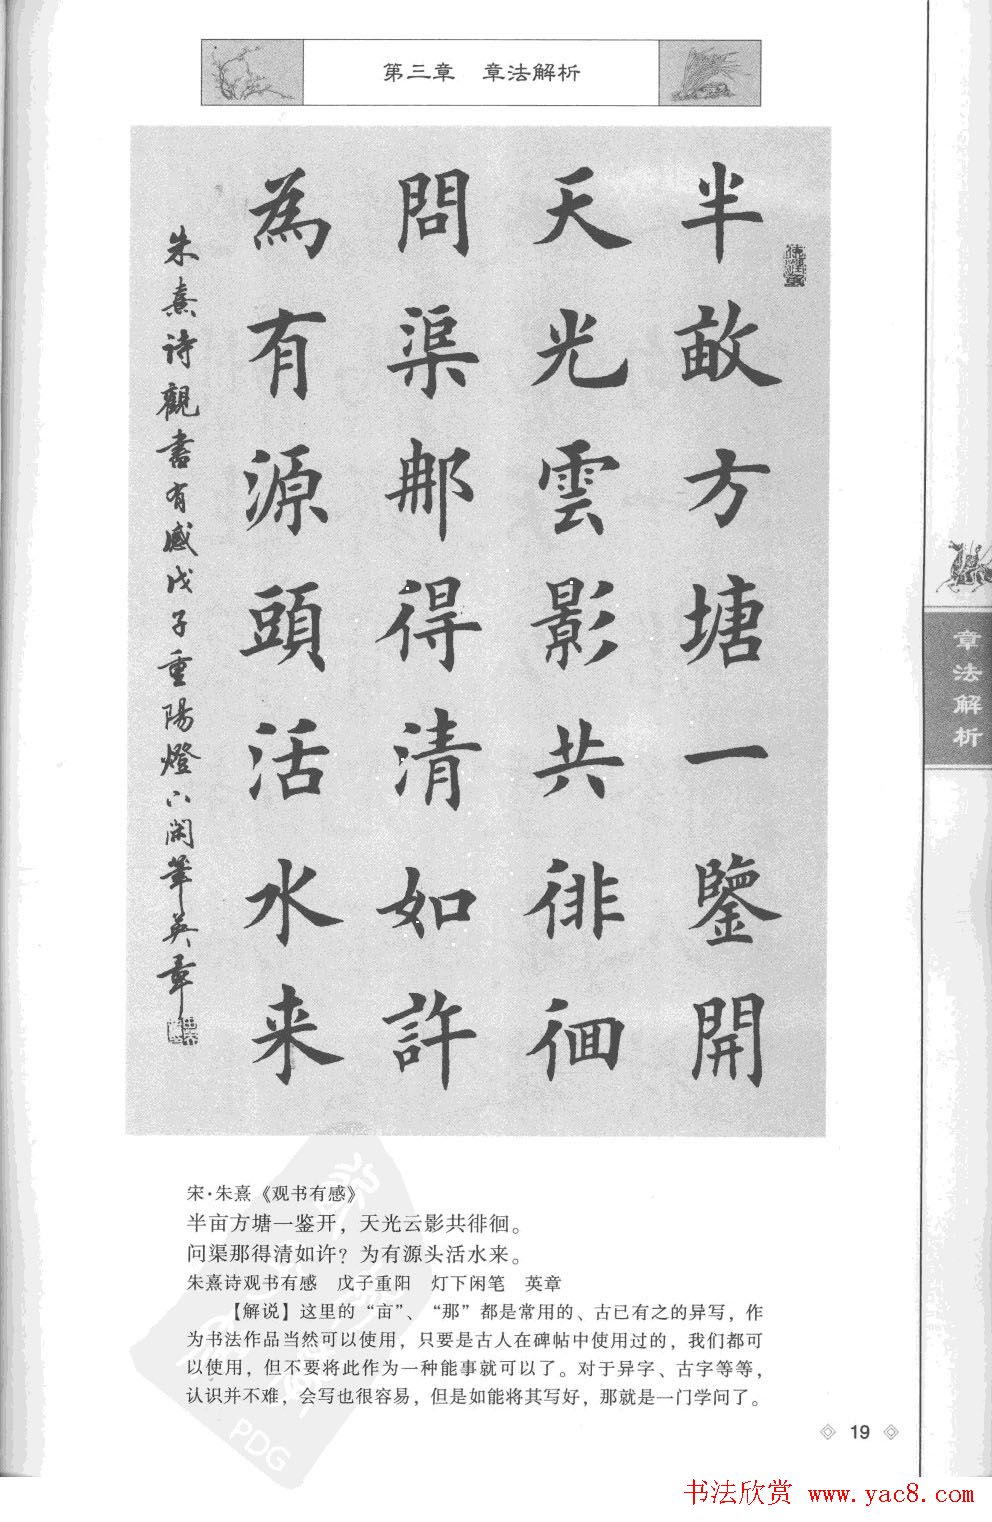 第三章　章法解析
半畝方塘一鑒開
天光雲影共徘徊
問渠那得清如許
為有源頭活水来
朱熹诗觀書有感戊子重陽燈下闲筆英章
章法解析
宋·朱熹《观书有感》
半亩方塘一鉴开，天光云影共徘徊。
问渠那得清如许？为有源头活水来。
朱熹诗观书有感　戊子重阳　灯下闲笔　英章
【解说】这里的“亩”、“那”都是常用的、古已有之的异写，作
为书法作品当然可以使用，只要是古人在碑帖中使用过的，我们都可
以使用，但不要将此作为一种能事就可以了。对于异字、古字等等，
认识并不难，会写也很容易，但是如能将其写好，那就是一门学问了。
PDG
19
书法欣赏 www.yac8.com